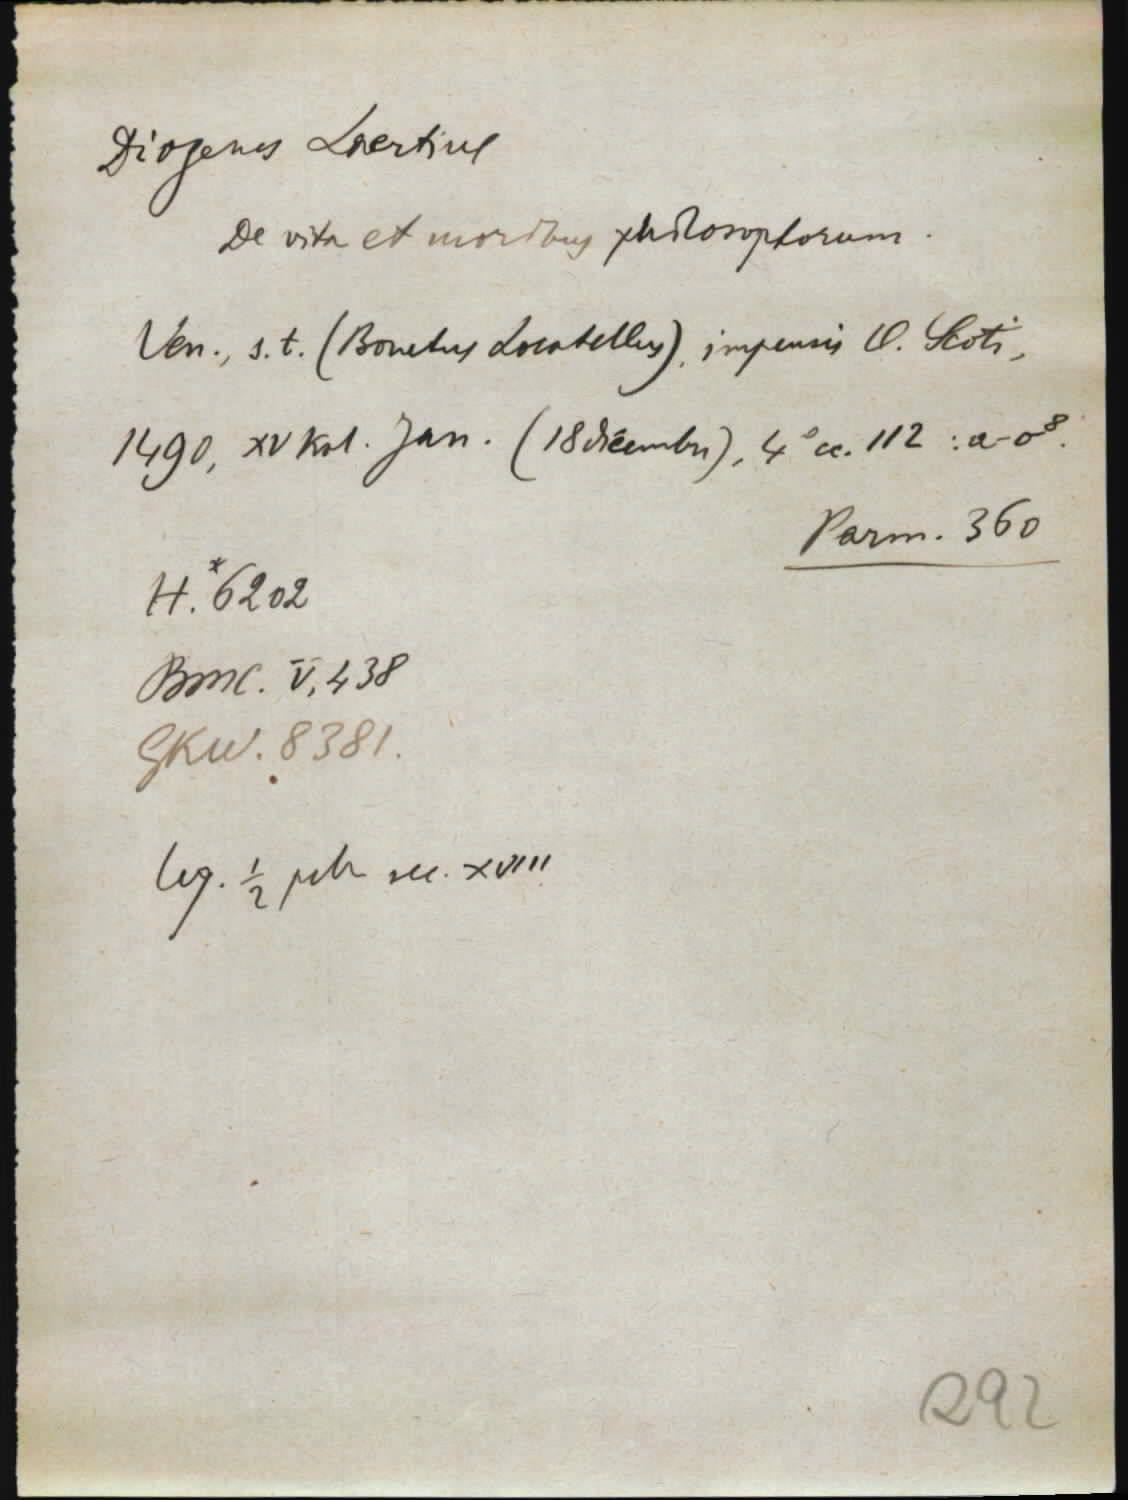 Diogenes Laertius
De vita et moribus philosophorum.
Ven., s.t. (Bonetus Locatellus), impensis O. Scoti,
1490, XV Kal. Jan. (18 dicembre), 4° cc. 112 : a-o⁸.
Parm. 360
H.*6202
BMC. V, 438
GKW. 8381.
leg. ½ pelle sec. XVIII
292